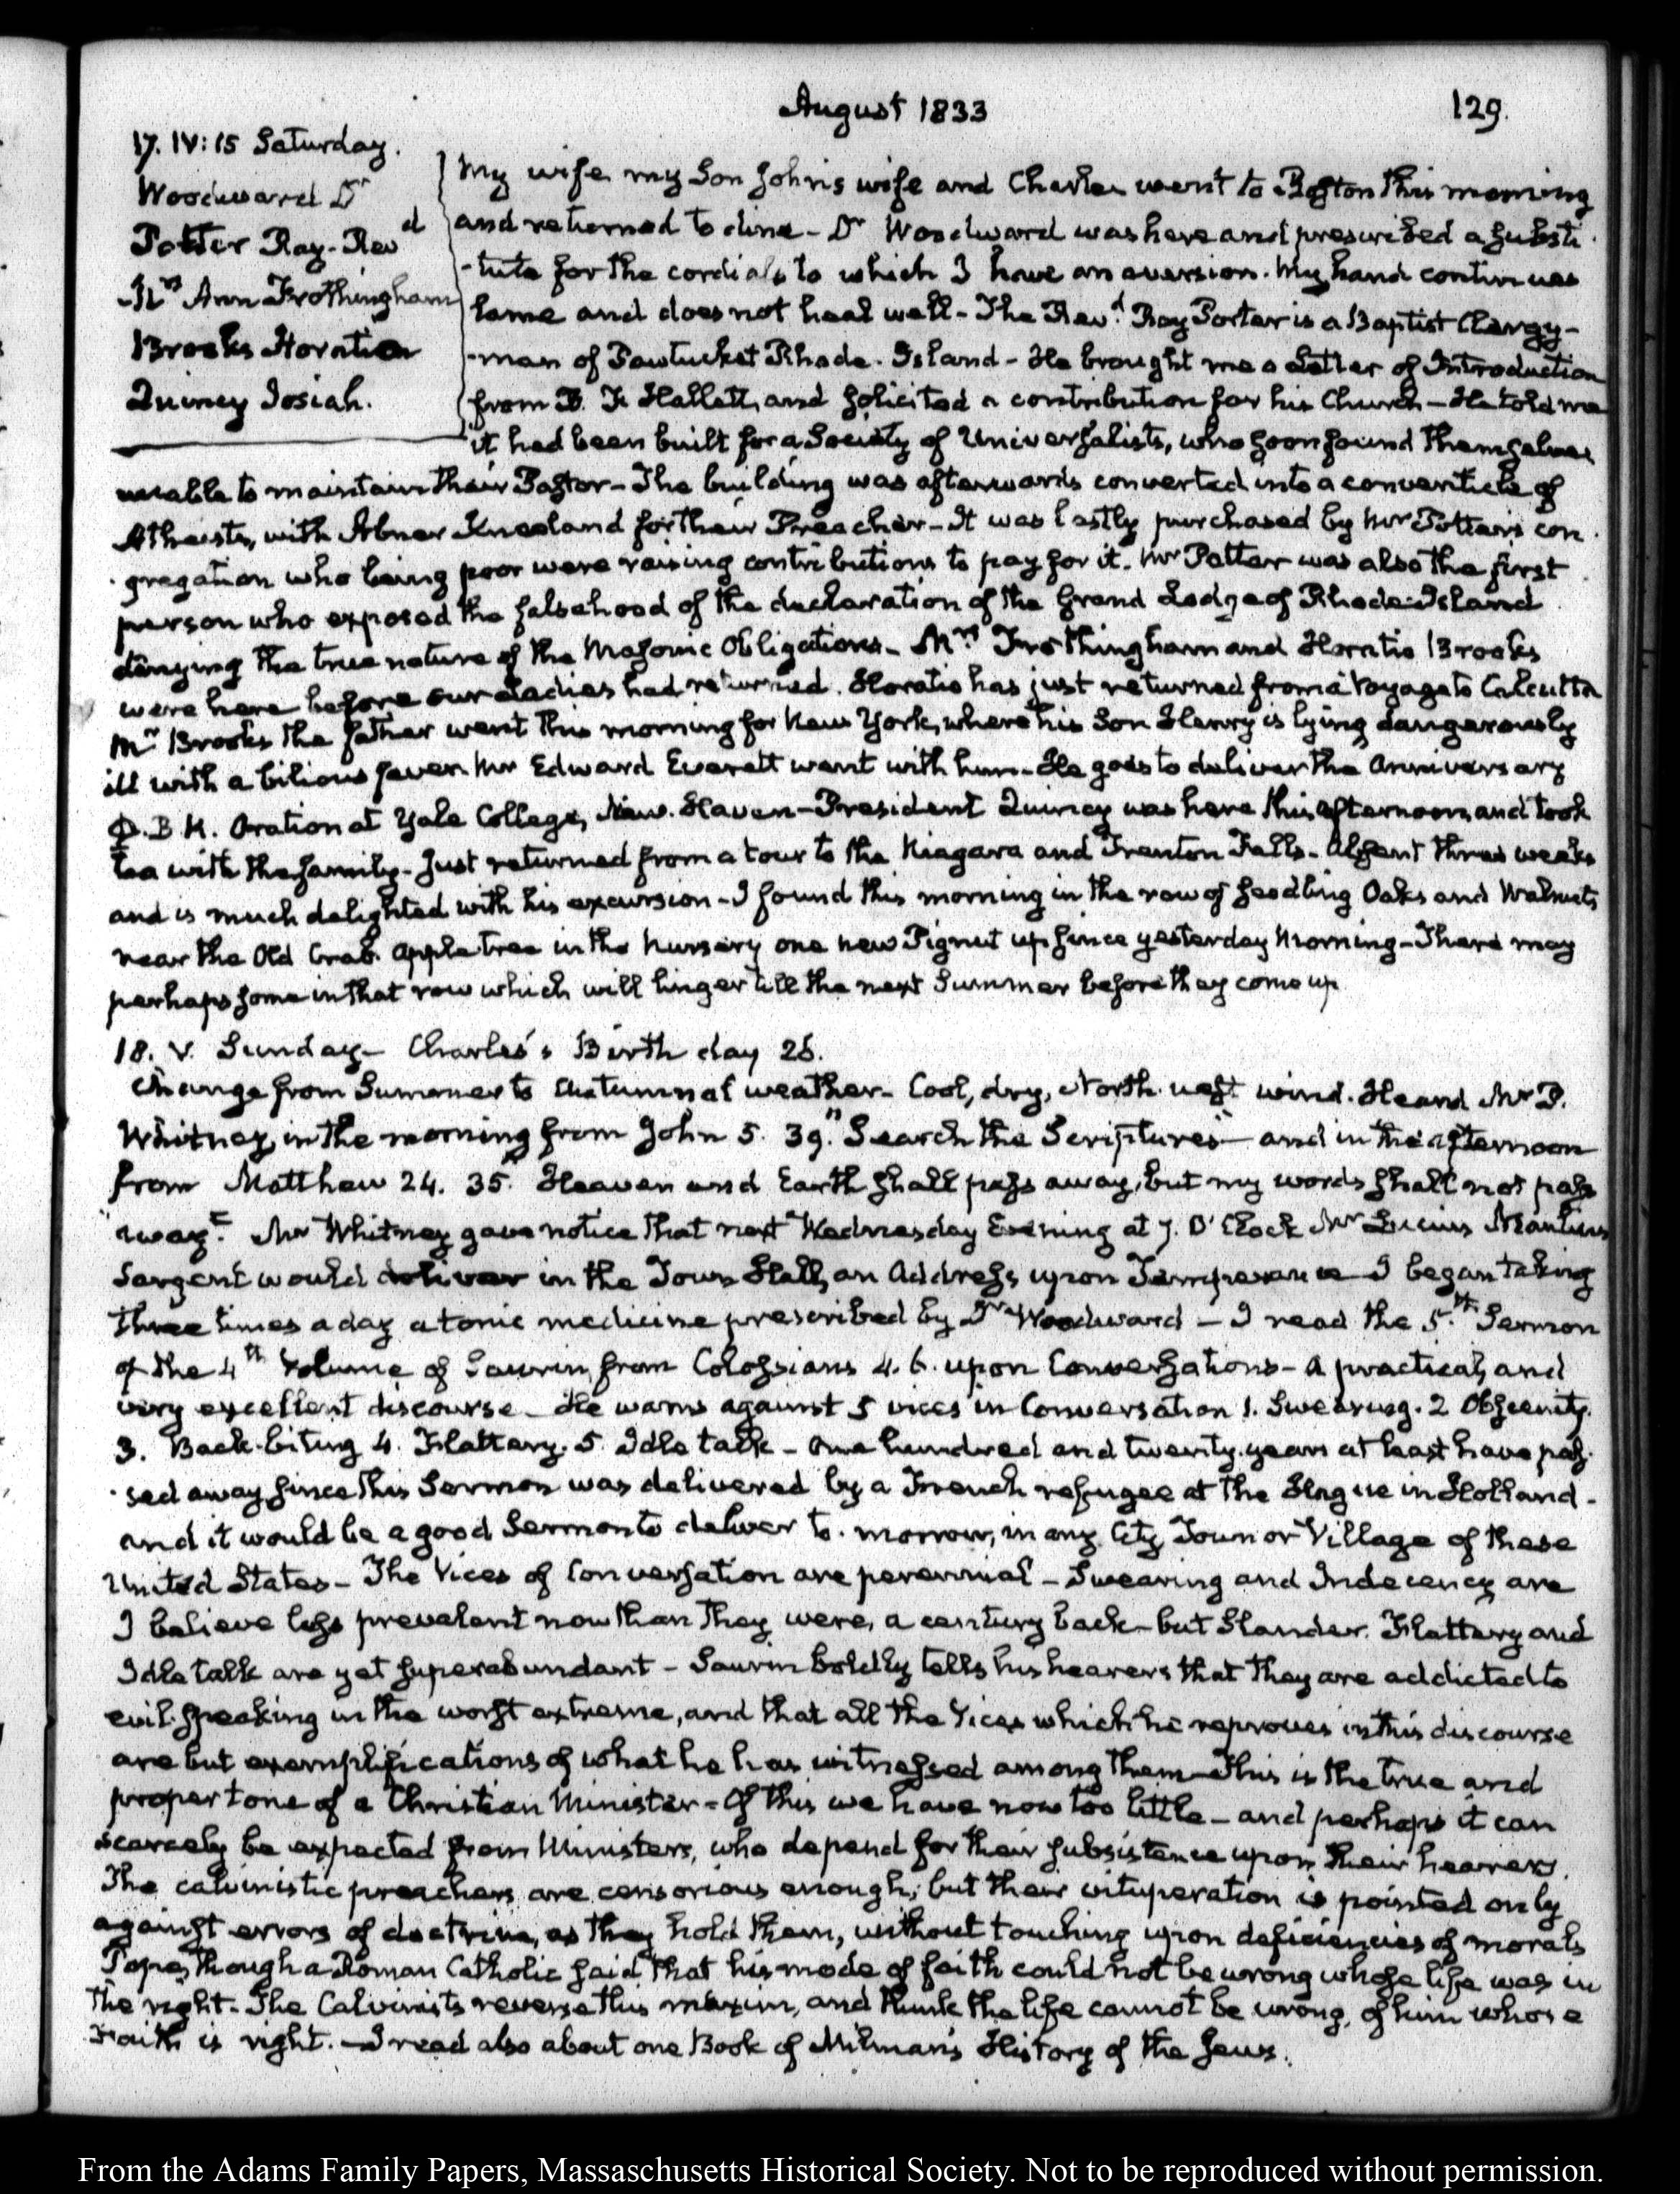 August 1833
129.
17. IV:15 Saturday.
Woodward Dr
Potter Ray- Revd
-Mrs Ann Frothingham
Brooks Horatio
Quincy Josiah.
My wife my Son John's wife and Charles went to Boston this morning
and returned to dine - Dr Woodward was here and prescribed a substi-
-tute for the cordials to which I have an aversion. My hand continues
lame and does not heal well - The Revd. Ray Potter is a Baptist Clergy-
-man of Pawtucket Rhode-Island - He brought me a Letter of Introduction
from B. F. Hallett, and solicited a contribution for his Church - He told me
it had been built for a Society of Universalists, who soon found themselves
unable to maintain their Pastor - The building was afterwards converted into a conventicle of
Atheists, with Abner Kneeland for their Preacher - It was lastly purchased by Mr Potter's con-
-gregation who being poor were raising contributions to pay for it. Mr Potter was also the first
person who exposed the falsehood of the declaration of the Grand Lodge of Rhode-Island
denying the true nature of the Masonic Obligations - Mrs Frothingham and Horatio Brooks
were here before our Ladies had returned. Horatio has just returned from a Voyage to Calcutta
Mr Brooks the father went this morning for New York, where his Son Henry is lying dangerously
ill with a bilious fever. Mr Edward Everett went with him - He goes to deliver the Anniversary
Φ. B K. Oration at Yale College, New-Haven - President Quincy was here this afternoon, and took
tea with the family - Just returned from a tour to the Niagara and Trenton Falls - Absent three weeks
and is much delighted with his excursion - I found this morning in the row of seedling Oaks and Walnuts
near the Old Crab-apple tree in the Nursery one new Pignut up since yesterday Morning - There may
perhaps some in that row which will linger till the next Summer before they come up
18. V. Sunday - Charles's Birth day 26.
Change from Summer to Autumnal weather - Cool, dry, North west wind. Heard Mr P.
Whitney, in the morning from John 5. 39. "Search the Scriptures" - and in the afternoon
from Matthew 24. 35. Heaven and Earth shall pass away, but my words shall not pass
away." Mr Whitney gave notice that next Wednesday Evening at 7. O'Clock Mr Lucius Manlius
Sargent would deliver in the Town Hall, an Address upon Temperance - I began taking
three times a day a tonic medicine prescribed by Dr Woodward - I read the 5.th Sermon
of the 4th Volume of Saurin, from Colossians 4. 6. upon Conversations - A practical, and
very excellent discourse - He warns against 5 vices in Conversation 1. Swearing. 2 Obscenity.
3. Back-biting 4. Flattery. 5. Idle talk - One hundred and twenty years at least have pas-
-sed away since this Sermon was delivered by a French refugee at the Hague in Holland -
and it would be a good Sermon to deliver to-morrow, in any City Town or Village of these
United States - The Vices of Conversation are perennial - Swearing and Indecency are
I believe less prevalent now than they were, a century back - but Slander. Flattery and
Idle talk are yet superabundant - Saurin boldly tells his hearers that they are addicted to
evil-speaking in the worst extreme, and that all the Vices which he reproves in this discourse
are but exemplifications of what he has witnessed among them - This is the true and
proper tone of a Christian Minister - Of this we have now too little - and perhaps it can
scarcely be expected from Ministers, who depend for their subsistence upon their hearers.
The calvinistic preachers are censorious enough; but their vituperation is pointed only
against errors of doctrine, as they hold them, without touching upon deficiencies of morals
Pope, though a Roman Catholic said that his mode of faith could not be wrong whose life was in
the right - The Calvinists reverse this maxim, and think the life cannot be wrong, of him whose
Faith is right. - I read also about one Book of Milman's History of the Jews.
From the Adams Family Papers, Massaschusetts Historical Society. Not to be reproduced without permission.